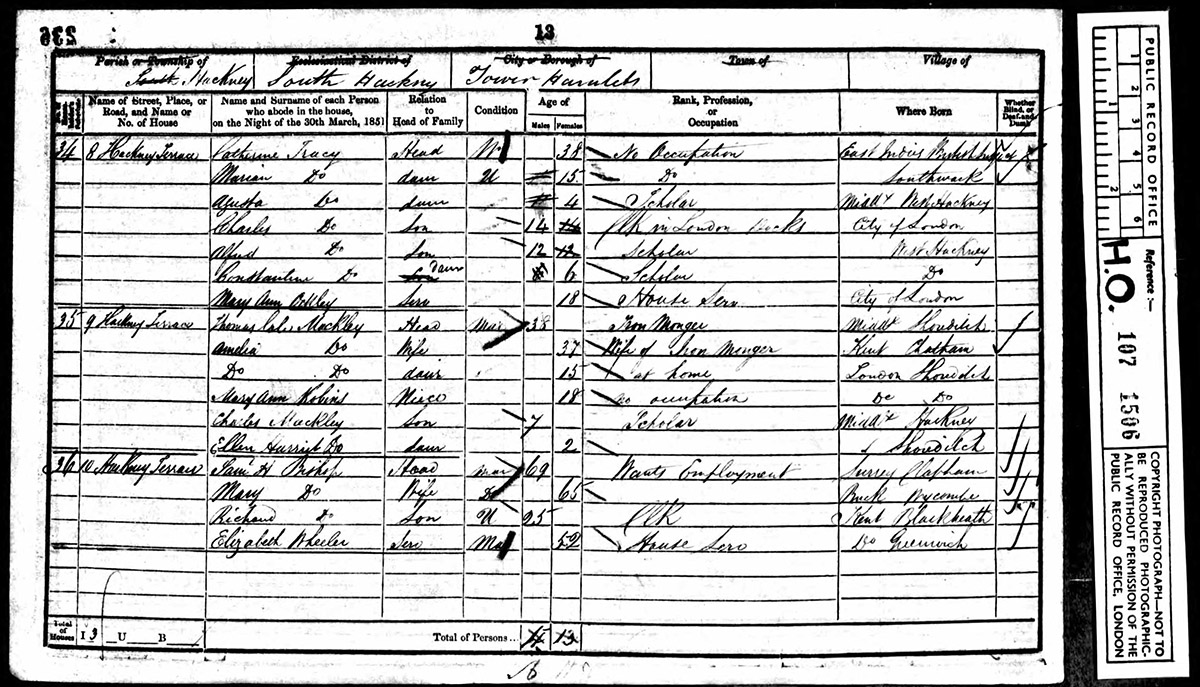 236
13
Parish or Township of Ecclesiastical District of City or Borough of Town of Village of
South Hackney South Hackney Tower Hamlets
Name of Street, Place, or Road, and Name or No. of House
Name and Surname of each Person who abode in the house, on the Night of the 30th March, 1851
Relation to Head of Family
Condition
Age of
Males Females
Rank, Profession, or Occupation
Where Born
Whether Blind, or Deaf-and-Dumb
34 8 Hackney Terrace Catherine Tracy Head 38 No Occupation East Indies British
Marian Do daur U 15 Do Southwark
Agusta Do daur 4 Scholar Middx West Hackney
Charles Do son 14 Clk in London Docks City of London
Alfred Do Son 12 Scholar West Hackney
Constantine Do Son daur 6 Scholar Do
Mary Ann Serv 18 House Serv City of London
35 9 Hackney Terrace Thomas Mackley Head Mar 38 Iron Monger Middx Shoreditch
Amelia Do Wife 37 Wife of Iron Monger Kent Chatham
Do Do daur 15 at home London Shoreditch
Mary Ann Robins Niece 18 no occupation Do Do
Charles Mackley son 7 Scholar Middx Hackney
Ellen Harriet Do daur 2 Shoreditch
36 10 Hackney Terrace Saml H Bishop Head Mar 69 Wants Employment Surrey Clapham
Mary Do Wife Do 65 Buck Wycombe
Richard Do Son U 25 Clk Kent Blackheath
Elizabeth Wheeler Serv 52 House Serv Do Greenwich
Total of Houses I 3 U B Total of Persons... 13
PUBLIC RECORD OFFICE
1 2 3 4 5 6
1 2
Reference:—
H.O. 107 1506
COPYRIGHT PHOTOGRAPH—NOT TO
BE REPRODUCED PHOTOGRAPHIC-
ALLY WITHOUT PERMISSION OF THE
PUBLIC RECORD OFFICE, LONDON